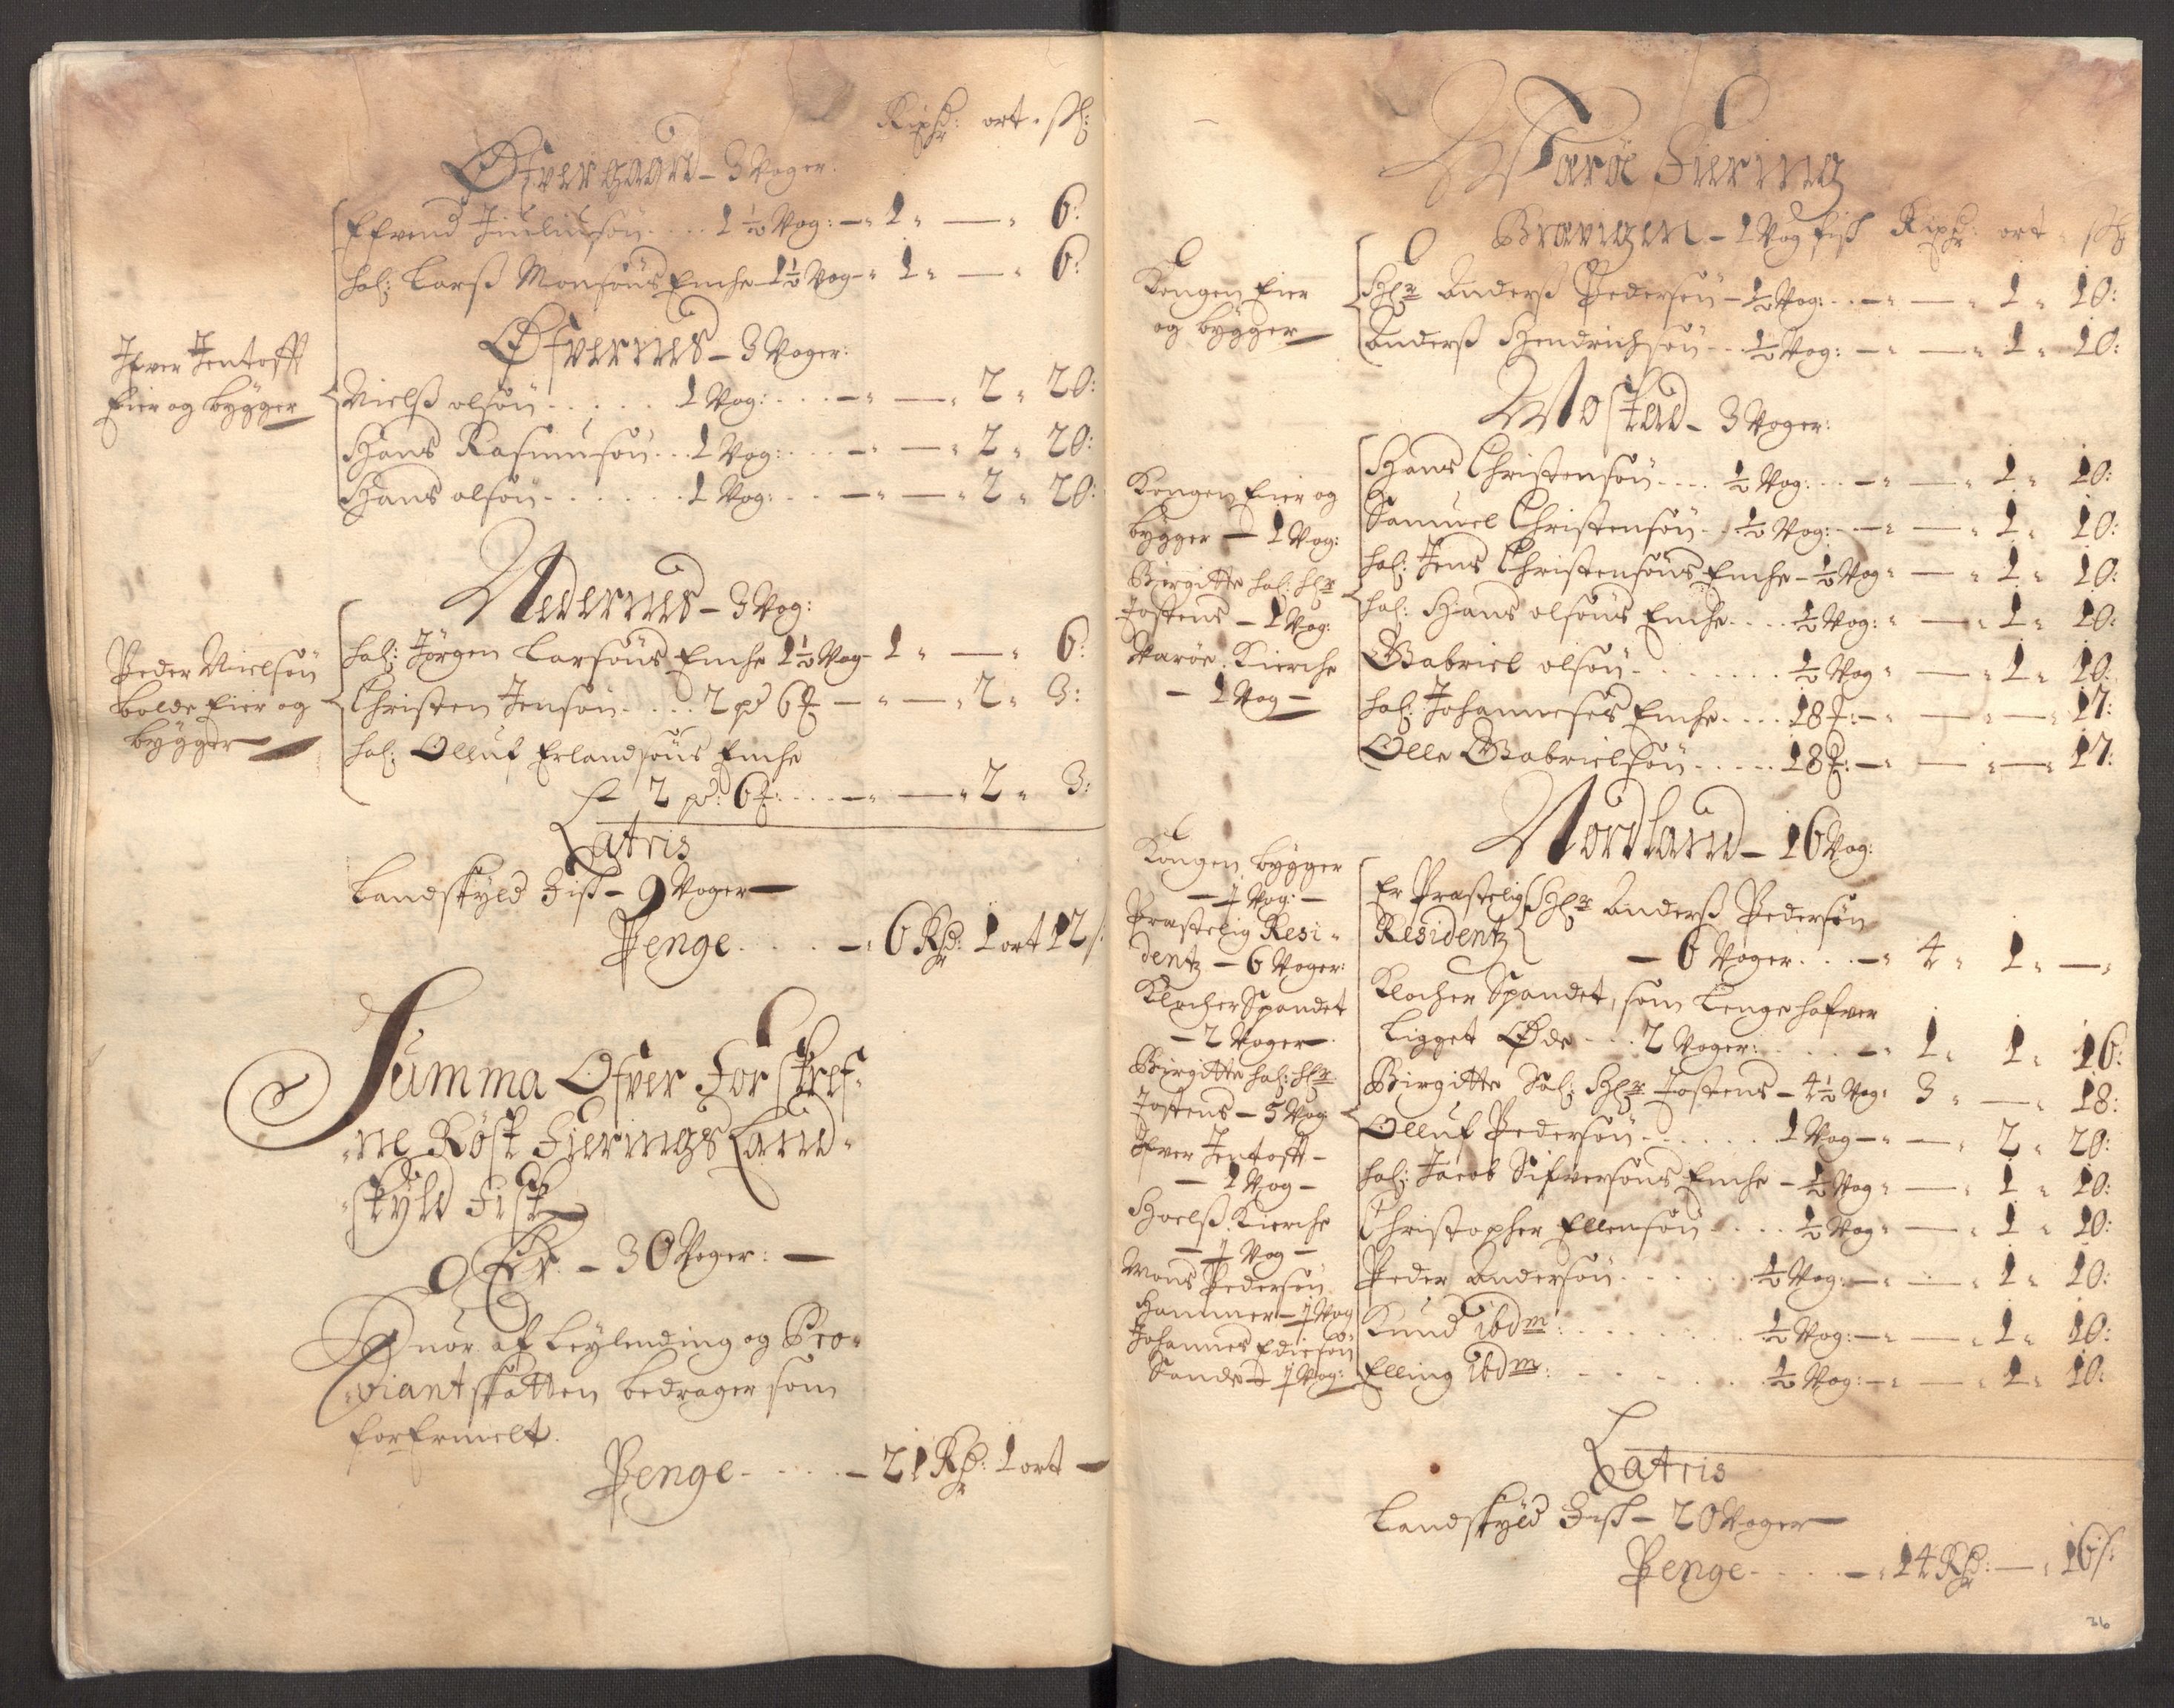 Rixdr: ort. sk:
Øfvergaard – 3 Voger:
Efvend Juulsøn .... 1½ Vog: – " 1 " — " 6:
Sal: Larß Monsøns Enche 1½ Vog – " 1 " — " 6:
Øfvernes – 3 Voger:
Ifver Jentofft
Eier og bygger
Nielß olsøn ..... 1 Vog: ... – " — " 2 " 20:
Hans Rasmusøn .. 1 Vog: ... – " — " 2 " 20:
Hans olsøn ...... 1 Vog: .. – " — " 2 " 20:
Nedernes – 3 Vog:
Peder Nielsøn
bolde Eier og
bygger
Sal: Jørgen Larsøns Enche 1½ Vog – 1 " — " 6:
Christen Jensøn .... 2 pd 6 – " — " 2 " 3:
Sal: Olluf Erlandsøns Enche
2 pd: 6: ... – " — " 2 " 3:
Latris
Landskyld Fisk – 9 Voger —
Penge .... – " 6 Rd: 1 ort 12 s
Summa Ofver For skref-
-ne Røst Fierings Land-
-skyld Fisk
Er – 30 Voger: —
Hvor af Leylending og Pro-
-viantskatten bedrager som
forermelt.
Penge ..... – 21 Rd: 1 ort —
Warøe Fiering
Brævigen – 1 Vog fisk Rixdr: ort sk
Kongen Eier
og bygger
Hr Anderß Pedersøn – ½ Vog: .. – " — " 1 " 10:
Anderß Hendrichsøn ... ½ Vog: – " — " 1 " 10:
Mostad – 3 Voger:
Kongen Eier og
bygger — 1 Vog:
Birgitte Sal: Hr
Jostens – 1 Vog:
Warøe Kierche
– 1 Vog –
Hans Christensøn .... ½ Vog: .. – " — " 1 " 10:
Samuel Christensøn .. ½ Vog: – " — " 1 " 10:
Sal: Jens Christensøns Enche – ½ Vog " — " 1 " 10:
Sal: Hans olsøns Enche .... ½ Vog: " — " 1 " 10:
Gabriel olsøn ....... ½ Vog " — " 1 " 10:
Sal: Johanneses Enche .... 18: – " — " — " 17:
Olle Gabrielsøn ..... 18: – " — " — " 17:
Nordland – 16 Vog:
Kongen bygger
– ½ Vog: –
Præstelig Resi-
dentz – 6 Voger:
Klocher Spandet
– 2 Voger –
Birgitte Sal: Hr
Jostens – 5 Vog:
Ifver Jentofft –
– 1 Vog –
Hoelß Kierche
– ½ Vog –
Mons Pedersøn
Hammer – ½ Vog
Johannes
Sande – ½ Vog:
Er Præstelig Hr Anderß Pedersøn
Residentz
— 6 Voger ... – " 4 " 1 " — "
Klocher Spandet, som Lenge hafver
Ligget Øde ... 2 Voger: .... – " 1 " 1 " 16:
Birgitte Sal: Hr Jostens – 4½ Vog: 3 " — " 18:
Olluf Pedersøn ...... 1 Vog – " — " 2 " 20:
Sal: Jacob Sifversøns Enche – ½ Vog " — " 1 " 10:
Christopher Ellensøn .... ½ Vog " — " 1 " 10:
Peder Andersøn ...... ½ Vog: – " — " 1 " 10:
Knud ibdm: ....... ½ Vog: – " — " 1 " 10:
Elling ibdm: ...... ½ Vog: – " — " 1 " 10:
Latris
Landskyld Fisk – 20 Voger —
Penge .... – " 14 Rd: — " 16 s:
36